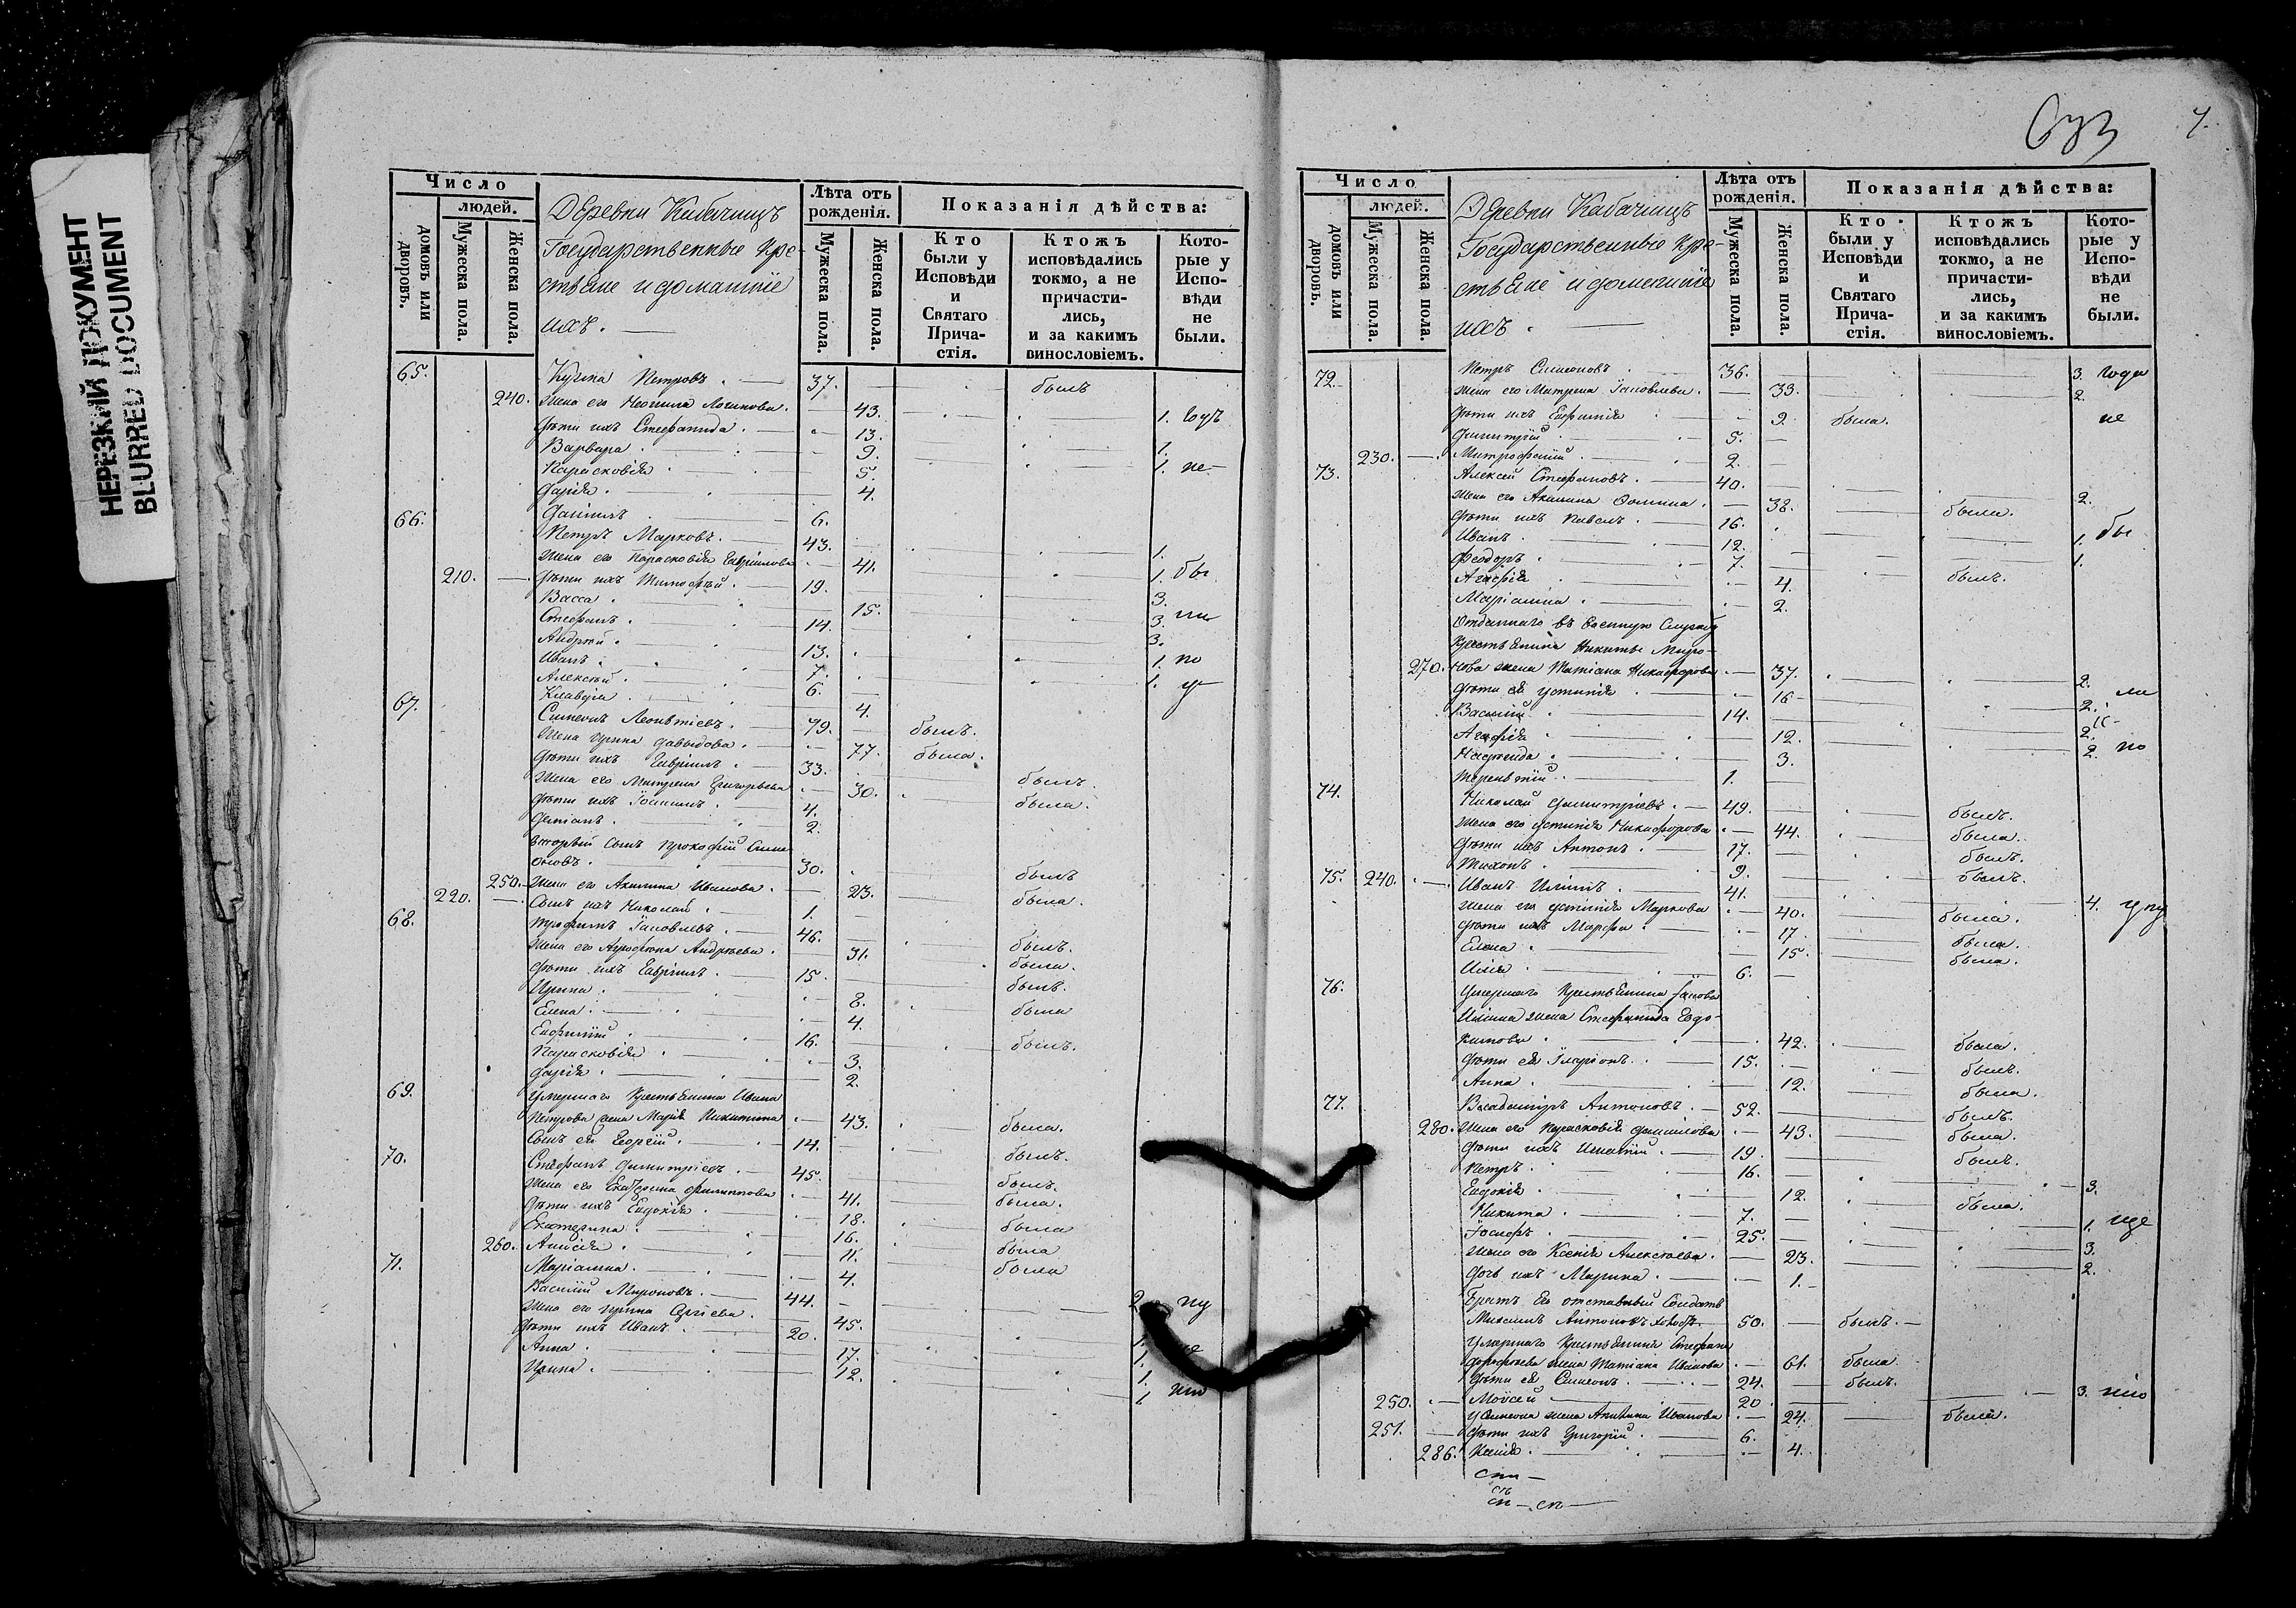 НЕРЕЗКИЙ ДОКУМЕНТ
BLURRED DOCUMENT
Число
людей.
домовъ или дворовъ.
Мужеска пола.
Женска пола.
Деревни Кабачищъ
Государственные кре-
стьяне и домашніе
ихъ.
Лѣта отъ рожденія.
Мужеска пола.
Женска пола.
Показанія дѣйства:
Кто были у Исповѣди и Святаго Прича-стія.
Ктожъ исповѣдались токмо, а не причасти-лись, и за какимъ винословіемъ.
Кото-рые у Испо-вѣди не были.
65. Кузма Петровъ. 37. былъ
240. Жена его Логинова. 43. 1.
Дѣти ихъ Стефанида. 13.
Варвара. 9. 1.
Парасковія 5. 1. не
Дарія. 4.
Даніилъ 6.
66. Петръ Марковъ. 43. 1.
Жена его Парасковія Гавріилова 41. 1. бы
210. Дѣти ихъ Тимофей. 19. 3.
Васса. 15. 3.
Стефанъ. 14. 3.
Андрей. 13. 1. по
Иванъ. 7. 1.
Алексѣй. 6.
Клавдія 4.
67. Симеонъ Леонтіевъ. 79. былъ.
Жена Ирина Давыдова. 77. была.
Дѣти ихъ Гавріилъ. 33. былъ.
Жена его Матрена Григорьева 30. была.
Дѣти ихъ Іоакимъ. 4.
Деміанъ. 2.
вторый сынъ Прокофій Симе
оновъ. 30. былъ
250. Жена его Акилина Иванова. 23. была.
220. Сынъ ихъ Николай. 1.
68. Трофимъ Іаковлевъ. 46. былъ.
Жена его Агрофена Андреева. 31. была.
Дѣти ихъ Гавріилъ. 15. былъ.
Ирина. 8. была
Елена. 4.
Евфимій 16. былъ.
Парасковія. 3.
Дарія. 2.
69. Умершаго крестьянина Ивана
Петрова жена Марія Никитина 43. была.
Сынъ ея Георгій. 14. былъ.
70. Стефанъ Димитріевъ. 45. былъ.
Жена его Екатерина Филиппова 41. была.
Дѣти ихъ Евдокія. 18. была
Екатерина. 16. была
260. Анисія. 11. была
Маріанна. 4.
71. Василій Мироновъ. 44. 2
Жена его Ирина Сергіева. 45. 1.
Дѣти ихъ Иванъ. 20. 1.
Анна. 17. 1.
Ирина. 12. 1
7.
Число
людей.
домовъ или дворовъ.
Мужеска пола.
Женска пола.
Деревни Кабачищъ
Государственные кре-
стьяне и домашніе
ихъ.
Лѣта отъ рожденія.
Мужеска пола.
Женска пола.
Показанія дѣйства:
Кто были у Исповѣди и Святаго Прича-стія.
Ктожъ исповѣдались токмо, а не причасти-лись, и за какимъ винословіемъ.
Кото-рые у Испо-вѣди не были.
72. Петръ Симеоновъ. 36. 3. года
Жена его Матрена Іаковлева. 33. 2.
Дѣти ихъ Евфимія 9. была. не
Димитрій 5.
230. Митрофаній. 2.
73. Алексей Стефановъ. 40. 2.
Жена его Акилина Фомина. 38. была.
Дѣти ихъ Павелъ. 16. 1. бы
Иванъ. 12. 1.
Феодоръ. 7. былъ.
Агафія 4.
Маріанна. 2.
Отданнаго въ военную службу
крестьянина Никиты Миро-
270. нова жена Татіана Никифорова 37. 2.
Дѣти ея Устинія 16 2. ли
Василій 14. 2.
Агафія 12. 2. по
Надежда. 3.
Терентій 1.
74. Николай Димитріевъ. 49. былъ.
Жена его Устинія Никифорова 44. была.
Дѣти ихъ Антонъ. 17. былъ.
Тихонъ. 9. былъ.
75. 240. Иванъ Илiинъ. 41. 4.
Жена его Устинія Маркова 40. была.
Дѣти ихъ Марфа. 17 была.
Елена. 15. была.
Илія. 6.
76. Умершаго крестьянина Іакова
Иліина жена Стефанида Евдо-
кимова. 42. была.
Дѣти ея Иларіонъ. 15. былъ.
Анна. 12. была.
77. Владиміръ Антоновъ. 52. былъ.
280. Жена его Парасковія Даниилова 43. была.
Дѣти ихъ Игнатій. 19. былъ.
Петръ. 16. 3.
Евдокія. 12. была.
Никита. 7. 1. ще
Іосифъ. 25. 3.
Жена его Ксенія Алексѣева. 23. 2.
Дочь ихъ Марина. 1.
Братъ его отставный солдатъ
Михаилъ Антоновъ 50. былъ.
Умершаго крестьянина Стефана
Дорофеева жена Татіана Иванова 61. была
Дѣти ея Симеонъ. 24. былъ.
250. Моѵсей 20. 3.
У Симеона жена Акилина Иванова 24. была.
251. Дѣти ихъ Григорій. 6.
286. Ксенія. 4.